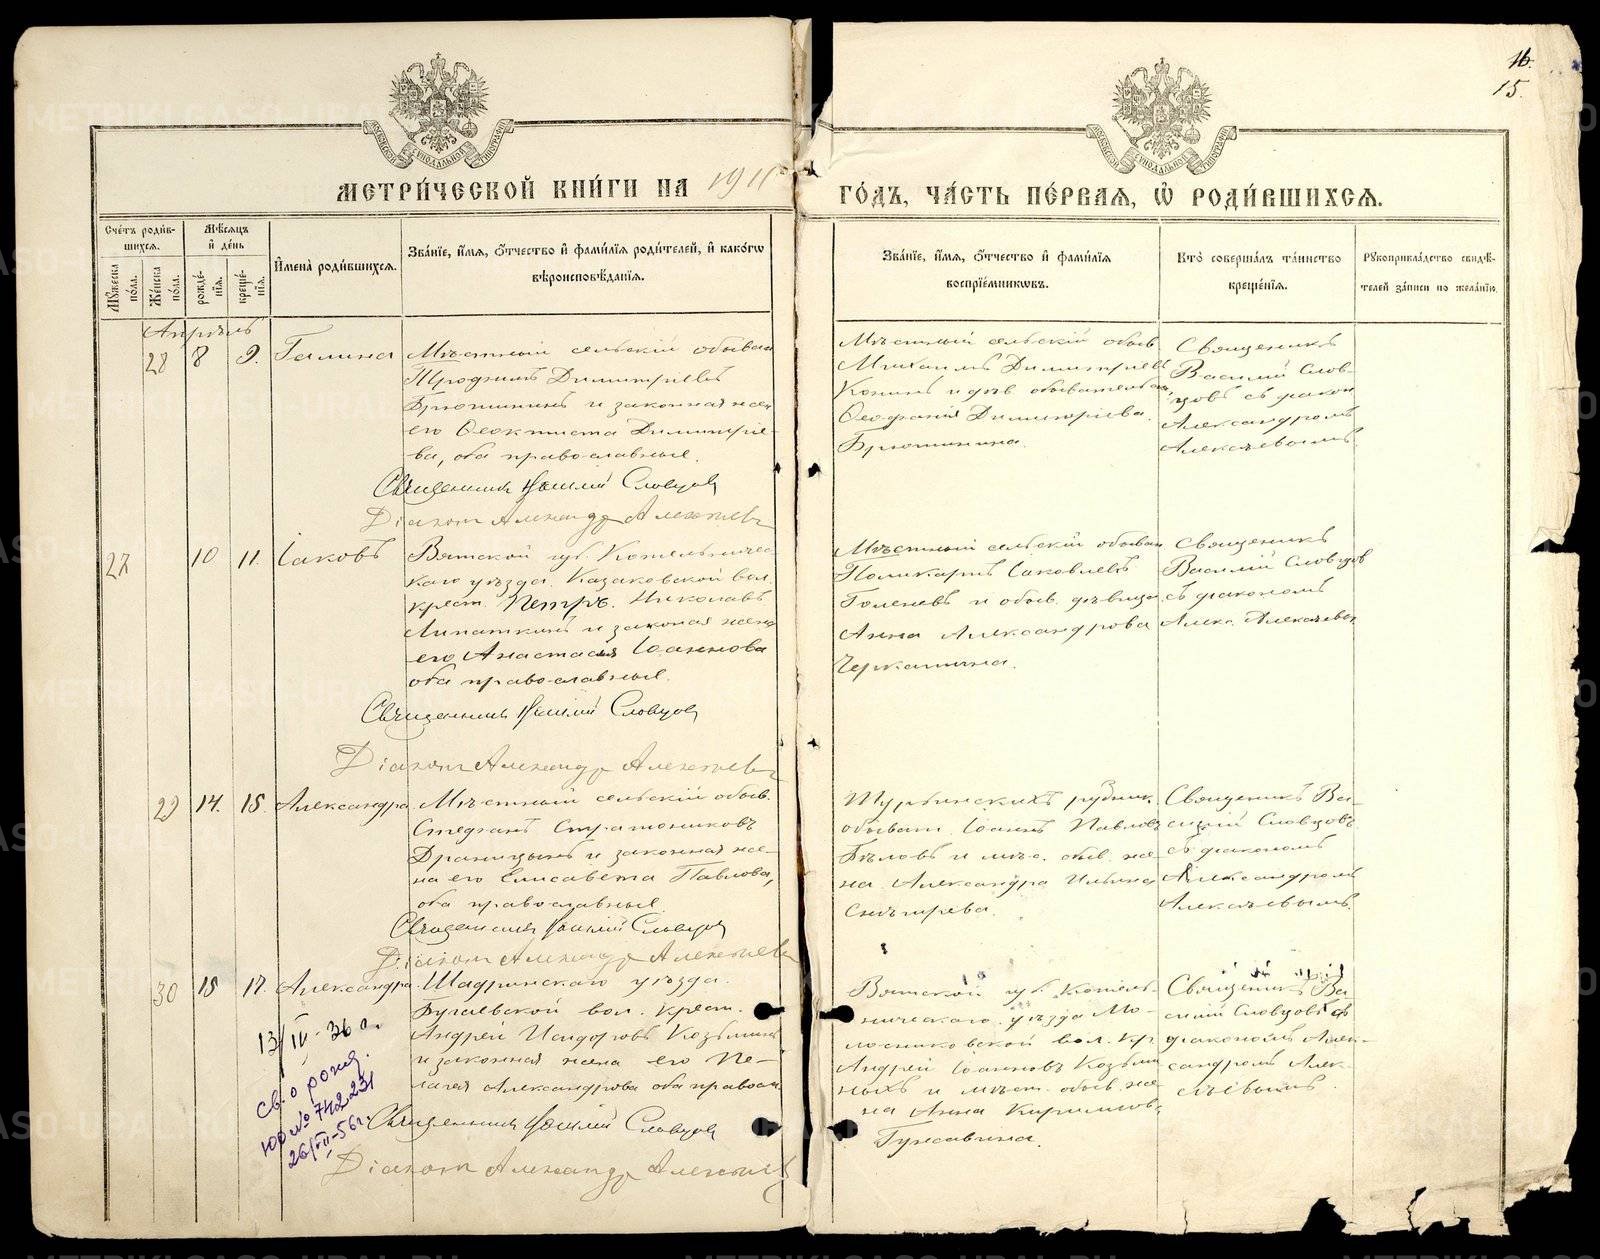 16.
15.
МОСКОВСКОЙ СѴНОДАЛЬНОЙ ТИПОГРАФІИ
МОСКОВСКОЙ СѴНОДАЛЬНОЙ ТИПОГРАФІИ
МЕТРИ́ЧЕСКОЙ КНИ́ГИ НА 1911
ГО́ДЪ, ЧА́СТЬ ПЕ́РВАЯ, Ѡ РОДИ́ВШИХСЯ.
Сче́тъ роди́в-
шихся.
Мꙋ́жеска по́ла.
Же́нска по́ла.
Мѣ́сяцъ
и҆ де́нь
рожде́-
нїя.
креще́-
нїя.
И҆мена̀ роди́вшихся.
Зва́нїе, и҆́мя, ѻ҆́тчество и҆ фами́лїя роди́телей, и҆ како́гѡ
вѣроисповѣ́данїя.
Зва́нїе, и҆́мя, ѻ҆́тчество и҆ фами́лїя
воспрїе́мникѡвъ.
Кто̀ соверша́лъ та́инство
креще́нїя.
Рꙋкоприкла́дство свидѣ́-
телей за́писи по жела́нїю.
Апрѣль
28 8 9. Галина
Мѣстный сельскій обыват
Трофимъ Димитріевъ
Брюшининъ и законная жен
его Ѳеоктиста Димитріе-
ва, оба православные.
Священникъ Василій Словцовъ
Діаконъ Александръ Алексѣевъ
Мѣстный сельскій обыв.
Михаилъ Димитріевъ
Конинъ и дѣв. обывательск
Ѳеофанія Димитріева
Брюшинина.
Священникъ
Василій Слов-
цовъ съ діакон
Александромъ
Алексѣевымъ.
27 10 11. Іаковъ
Вятской губ. Котельниче
каго уѣзда. Казаковской вол.
крест. Петръ. Николаевъ
Липаткинъ и законая жена
его Анастасія Іоаннова
оба православные.
Священникъ Василій Словцовъ
Діаконъ Александръ Алексѣевъ
Мѣстный сельскій обыват
Поликарпъ Іаковлевъ
Голеневъ и обыв. дѣвица
Анна Александрова
Черкашина.
Священникъ
Василій Словцовъ
съ діакономъ
Алекс. Алексѣевым
29 14. 15. Александра
Мѣстный сельскій обыв.
Стефанъ Стратониковъ
Драницынъ и законная же-
на его Елисавета Павлова,
оба православные.
Священникъ Василій Словцовъ
Діаконъ Александръ Алексѣевъ
обыват. Іоаннъ Павловъ
Бѣловъ и мѣс. обыв. же-
на Александра Ильина
Снѣгирева.
Священникъ Ва-
силій Словцовъ
съ діакономъ
Александромъ
Алексѣевымъ.
30 15 17. Александра
Шадринскаго уѣзда.
Бугаевской вол. крест.
Андрей Исидоровъ Козьминъ
и законная жена его Пе-
лагея Александрова оба правосл
Священникъ Василій Словцовъ
Діаконъ Александръ Алексѣевъ
Вятской губ. Котель-
ническаго уѣзда Мо-
лосниковской вол. кр.
Андрей Іоанновъ Козьми
ныхъ и мѣст. обыв. же-
на Анна Кирилова
Гужавина.
Священникъ Ва-
силій Словцовъ съ
діакономъ Алек-
сандромъ Алек-
сѣевымъ.
13/IV-36 г.
св. о рожд.
ЮО № 742231
26/VII-56 г.